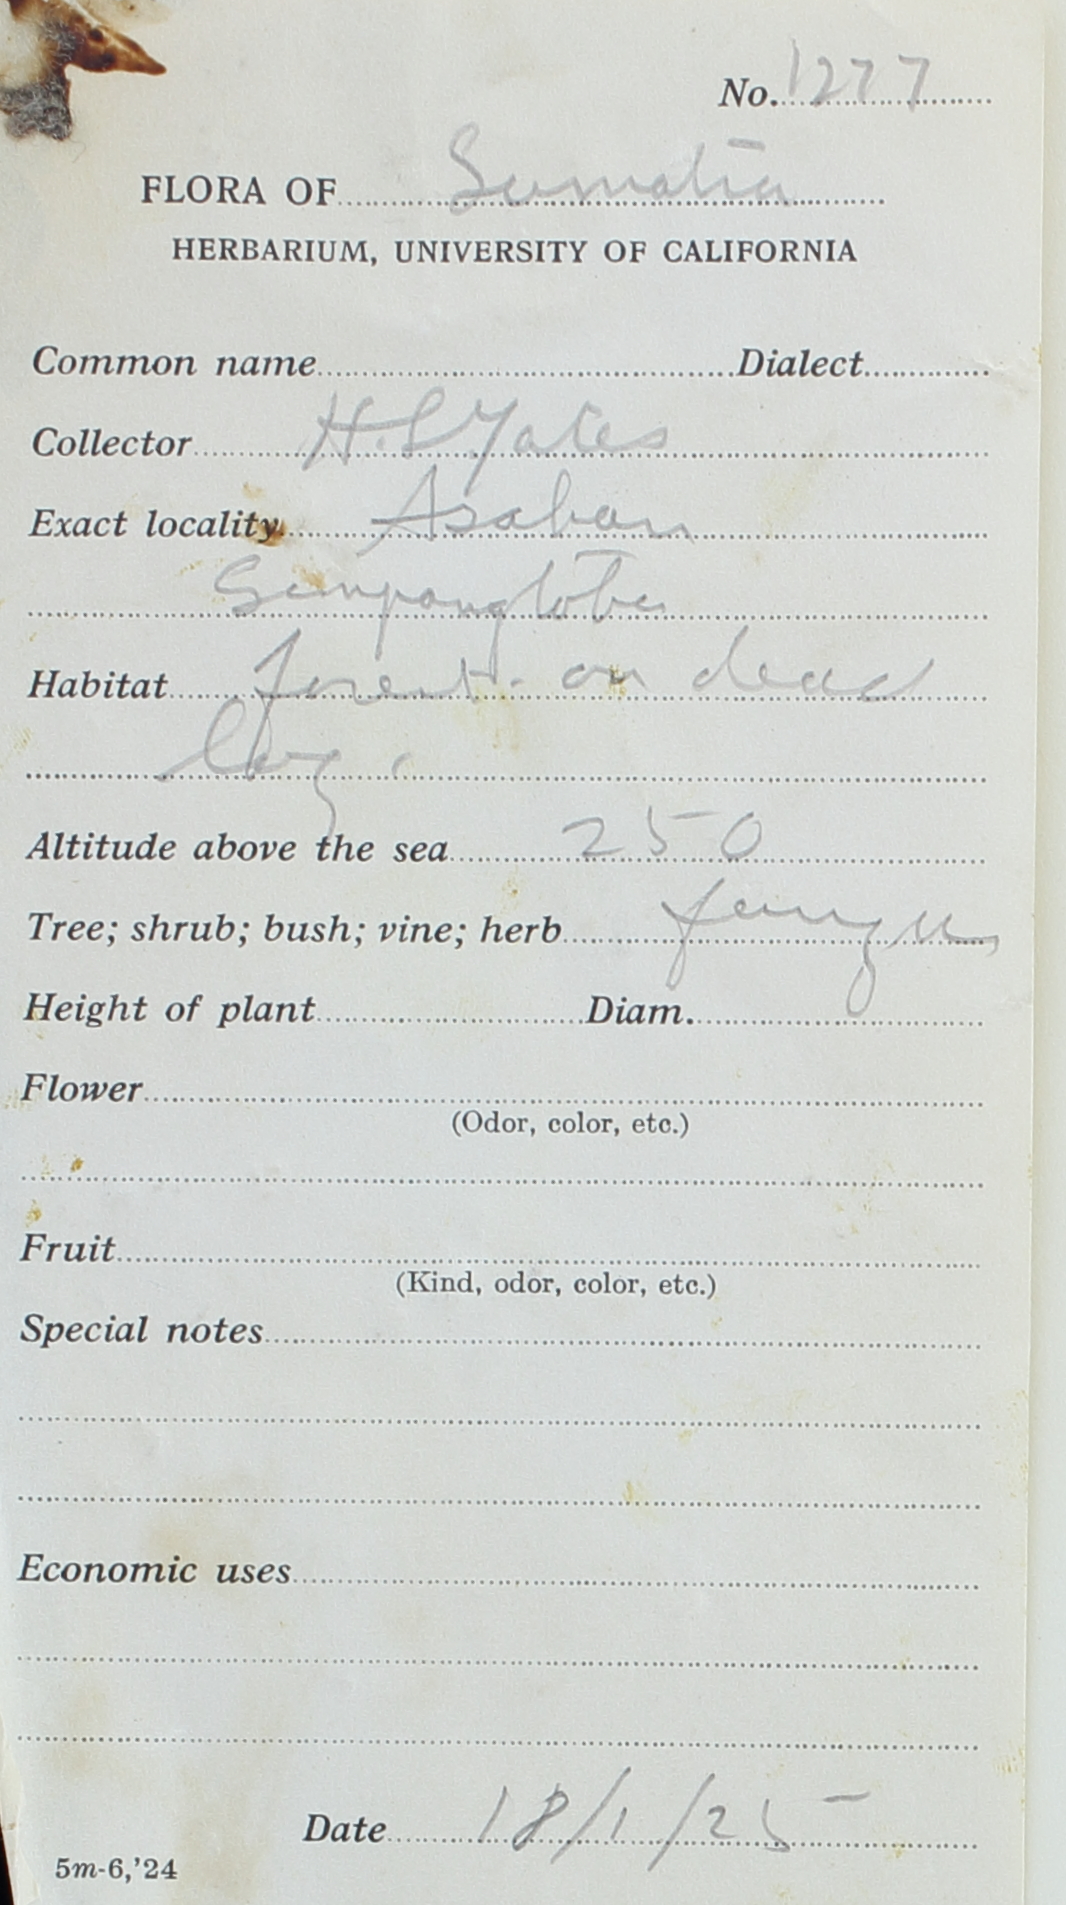 No. 1277
FLORA OF Sumatra
HERBARIUM, UNIVERSITY OF CALIFORNIA
Common name Dialect
Collector H.S. Yates
Exact locality Asahan
Habitat forest. on dead
log.
Altitude above the sea 250
Tree; shrub; bush; vine; herb fungus
Height of plant Diam.
Flower
(Odor, color, etc.)
Fruit
(Kind, odor, color, etc.)
Special notes
Economic uses
Date 18/1/25
5m-6,'24